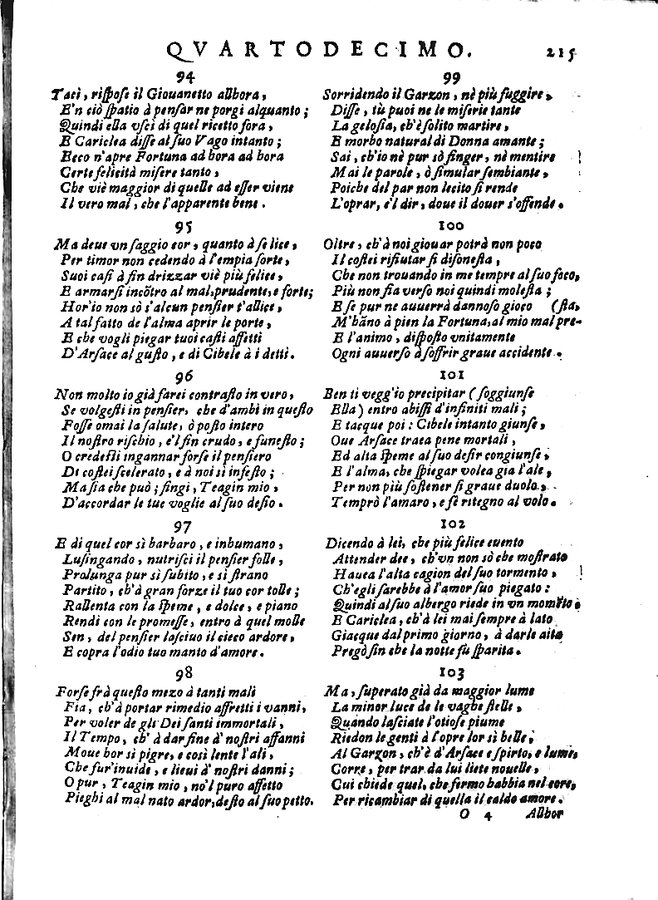 QVARTODECIMO. 215
94
Tacì, rispose il Giouanetto allhora,
E'n ciò spatio à pensar ne porgi alquanto;
Quindi ella vscì di quel ricetto fora,
E Cariclea disse al suo Vago intanto;
Ecco n'apre Fortuna ad hora ad hora
Certe felicità misere tanto,
Che viè maggior di quelle ad esser viene
Il vero mal, che l'apparente bene.
95
Ma deue vn saggio cor, quanto à se lice,
Per timor non cedendo à l'empia sorte,
Suoi casi à fin drizzar viè più felice,
E armarsi incōtro al mal, prudente, e forte;
Hor'io non sò s'alcun pensier t'allice,
A tal fatto de l'alma aprir le porte,
E che vogli piegar tuoi casti affetti
D'Arsace al gusto, e di Cibele à i detti.
96
Non molto io già farei contrasto in vero,
Se volgesti in pensier, che d'ambi in questo
Fosse omai la salute, ò posto intero
Il nostro rischio, e'l fin crudo, e funesto;
O credesti ingannar forse il pensiero
Di costei scelerato, e à noi sì infesto;
Ma sia che può; fingi, Teagin mio,
D'accordar le tue voglie al suo desio.
97
E di quel cor sì barbaro, e inhumano,
Lusingando, nutrisci il pensier folle,
Prolunga pur sì subito, e sì strano
Partito, ch'à gran forze il tuo cor tolle;
Rallenta con la speme, e dolce, e piano
Rendi con le promesse, entro à quel molle
Sen, del pensier lasciuo il cieco ardore,
E copra l'odio tuo manto d'amore.
98
Forse frà questo mezo à tanti mali
Fia, ch'à portar rimedio affretti i vanni,
Per voler de gli Dei santi immortali,
Il Tempo, ch'à dar fine à' nostri affanni
Moue hor sì pigre, e così lente l'ali,
Che fur'inuide, e lieui à' nostri danni;
O pur, Teagin mio, no'l puro affetto
Pieghi al mal nato ardor, desto al suo petto.
99
Sorridendo il Garzon, nè più fuggire,
Disse, tù puoi ne le miserie tante
La gelosia, ch'è solito martire,
E morbo natural di Donna amante;
Sai, ch'io nè pur sò finger, nè mentire
Mai le parole, ò simular sembiante,
Poiche del par non lecito si rende
L'oprar, e'l dir, doue il douer s'offende.
100
Oltre, ch'à noi giouar potrà non poco
Il costei rifiutar sì disonesta,
Che non trouando in me tempre al suo foco,
Più non fia verso noi quindi molesta;
E se pur ne auuerrà dannoso gioco (sta,
M'hāno à pien la Fortuna, al mio mal pre-
E l'animo, disposto vnitamente
Ogni auuerso à soffrir graue accidente.
101
Ben ti vegg'io precipitar (soggiunse
Ella) entro abissi d'infiniti mali;
E tacque poi: Cibele intanto giunse,
Oue Arsace traea pene mortali,
Ed alta speme al suo desir congiunse,
E l'alma, che spiegar volea già l'ale,
Per non più sostener sì graue duolo,
Temprò l'amaro, e fè ritegno al volo.
102
Dicendo à lei, che più felice euento
Attender dee, ch'vn non sò che mostrato
Hauea l'alta cagion del suo tormento,
Ch'egli sarebbe à l'amor suo piegato:
Quindi al suo albergo riede in vn momēto.
E Cariclea, ch'à lei mai sempre à lato
Giacque dal primo giorno, à darle aita
Pregò sin che la notte fù sparita.
103
Ma, superato già da maggior lume
La minor luce de le vaghe stelle,
Quando lasciate l'otiose piume
Riedon le genti à l'opre lor sì belle;
Al Garzon, ch'è d'Arsace e spirto, e lume,
Corre, per trar da lui liete nouelle,
Cui chiede quel, che fermo habbia nel core,
Per ricambiar di quella il caldo amore.
O 4 Allhor